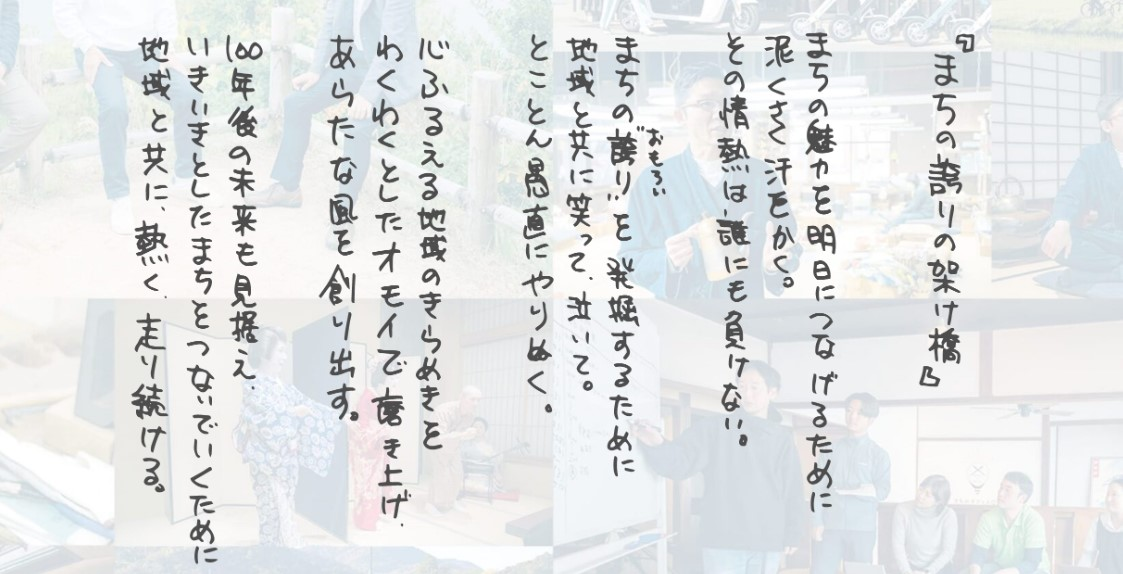 『まちの誇りの架け橋』
まちの魅力を明日につなげるために
泥くさく汗をかく。
その情熱は、誰にも負けない。
おもろい
まちの“誇り”を発掘するために
地域と共に笑って、泣いて。
とことん愚直にやりぬく。
心ふるえる地域のきらめきを
わくわくとしたオモイで磨き上げ、
あらたな風を創り出す。
100年後の未来も見据え、
いきいきとしたまちをつないでいくために
地域と共に、熱く、走り続ける。